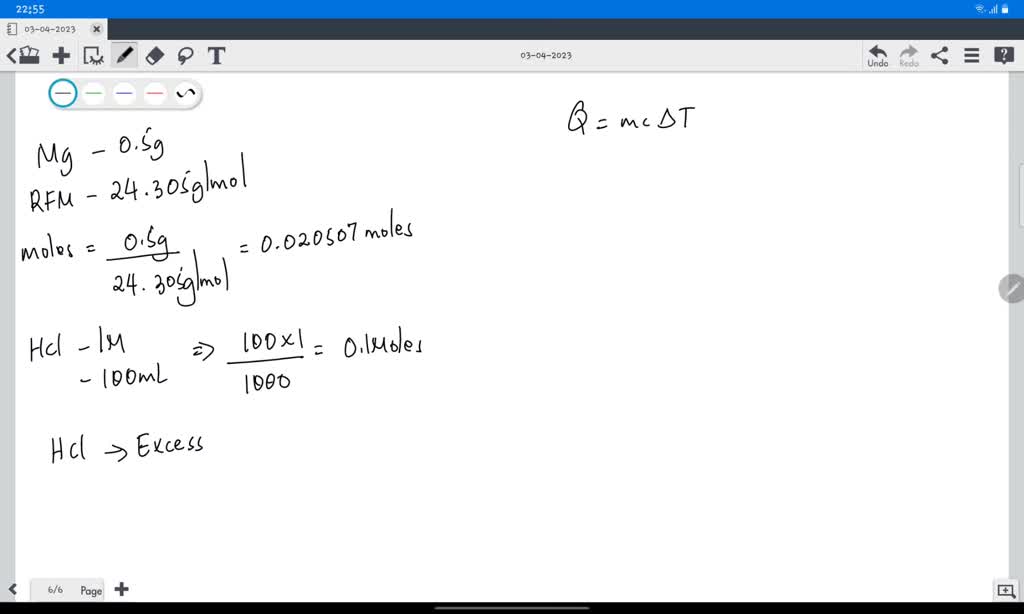 22:55
03-04-2023
T
03-04-2023
Undo
Redo
Mg - 0.5g
RFM - 24.305g/mol
moles = 0.5g / 24.305g/mol = 0.020507 moles
HCl - 1M
- 100mL
=> 100 x 1 / 1000 = 0.1 Moles
HCl → Excess
Q = mcΔT
6/6 Page